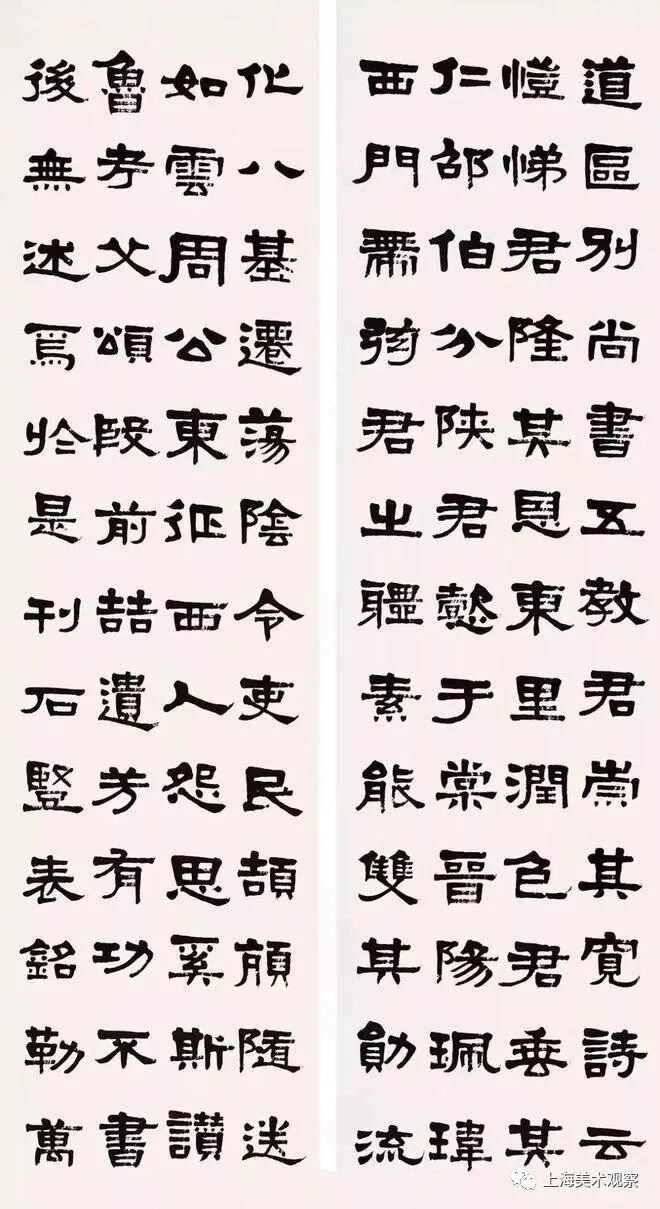 道區別尚書五教君崇其寬詩云
愷悌君隆其恩東里潤色君垂其
仁邵伯分陝君懿于棠晉陽珮瑋
西門帶弦君之體素能雙其勛流
化八基遷蕩陰令吏民頡頏隨送
如雲周公東征西人怨思奚斯讚
魯考父頌殷前喆遺芳有功不書
後無述焉於是刊石豎表銘勒萬
上海美术观察